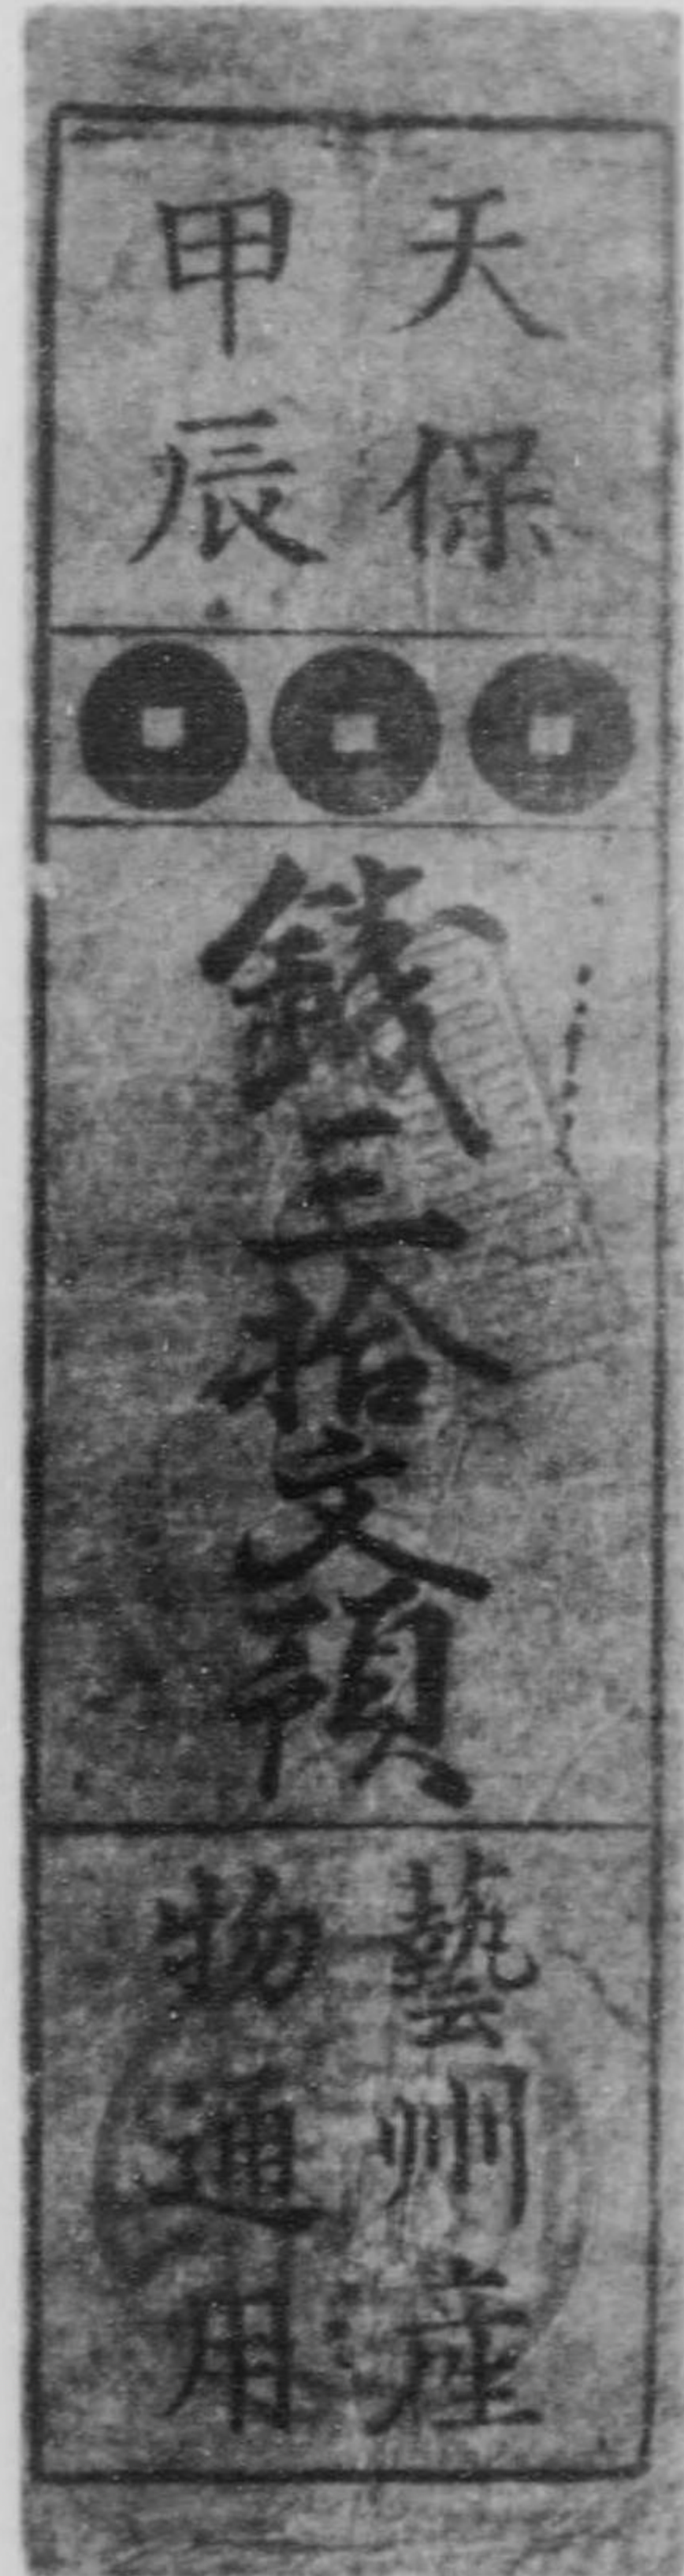 天保
甲辰
錢三拾文預
藝州産
物通用